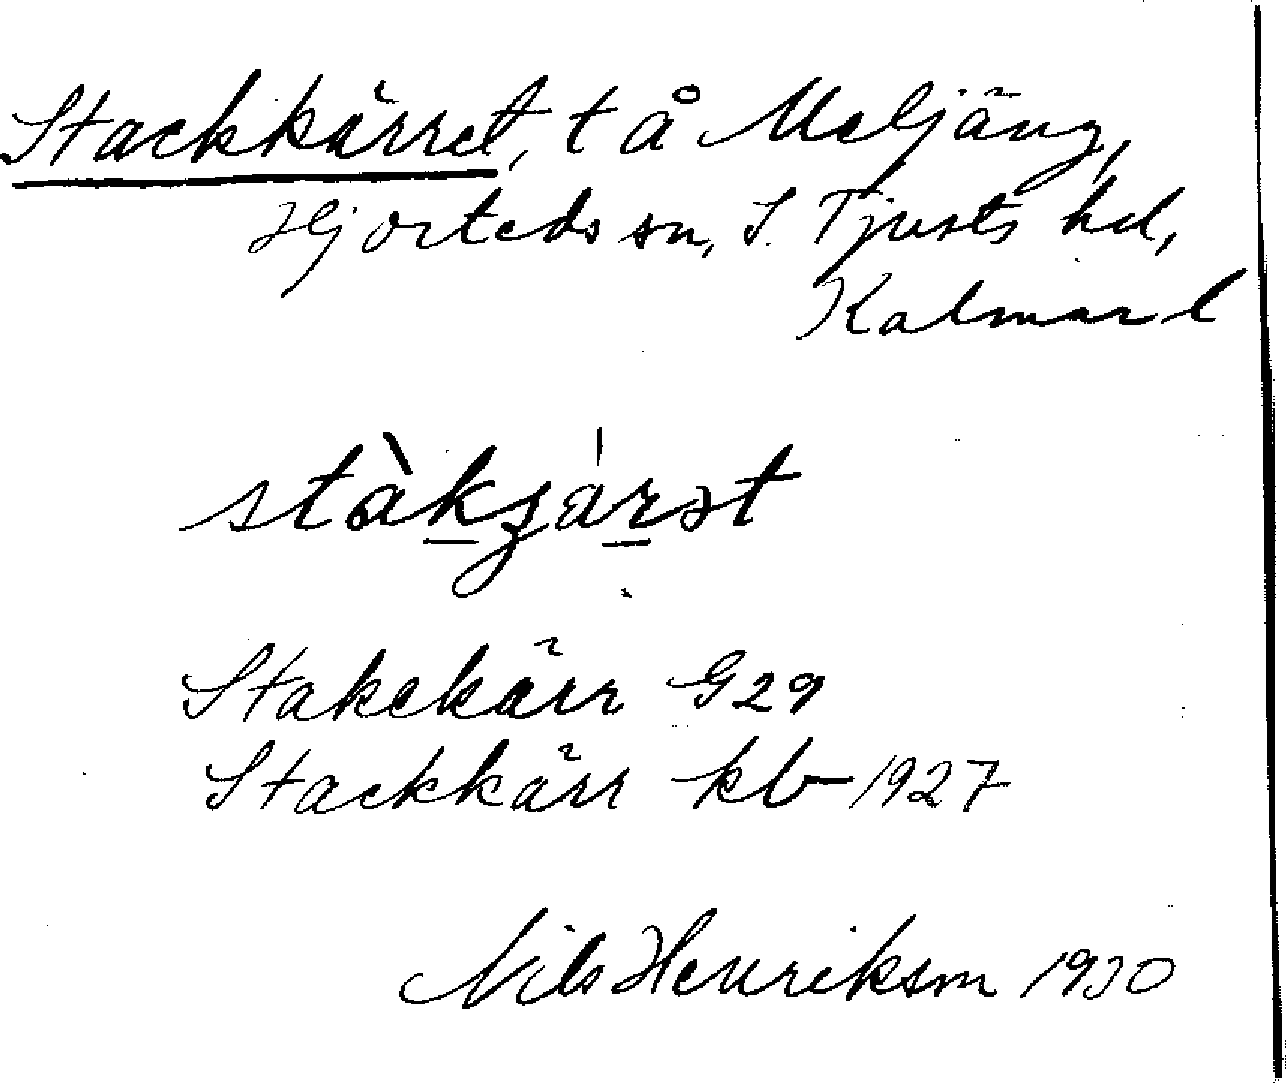 Stackkärret, t å Meljäng,
Hjorteds sn, S. Tjusts hd,
Kalmar l
stàkʒárət
Stakekärr G29
Stackkärr kb 1927
Nils Henrikson 1930